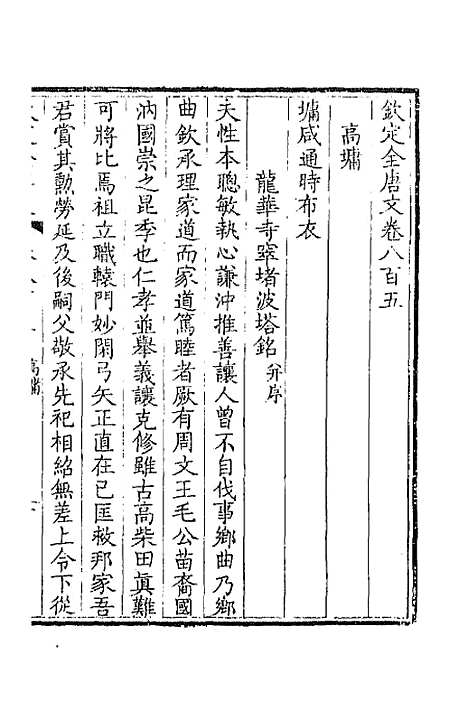 欽定全唐文卷八百五
高墉
墉咸通時布衣
龍華寺窣堵波塔銘并序
夫性本聰敏執心謙沖推善讓人曾不自伐事鄉曲乃鄉
曲欽承理家道而家道篤睦者厥有周文王毛公苗裔國
汭國崇之昆季也仁孝並舉義讓克修雖古高柴田真難
可將比焉祖立職轅門妙閑弓矢正直在已匡救邦家吾
君賞其勳勞延及後嗣父敬承先祀相紹無差上令下從
高墉